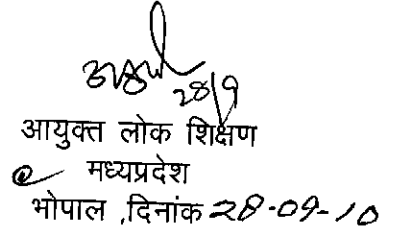 28/9
आयुक्त लोक शिक्षण
मध्यप्रदेश
भोपाल ,दिनांक 28-09-10